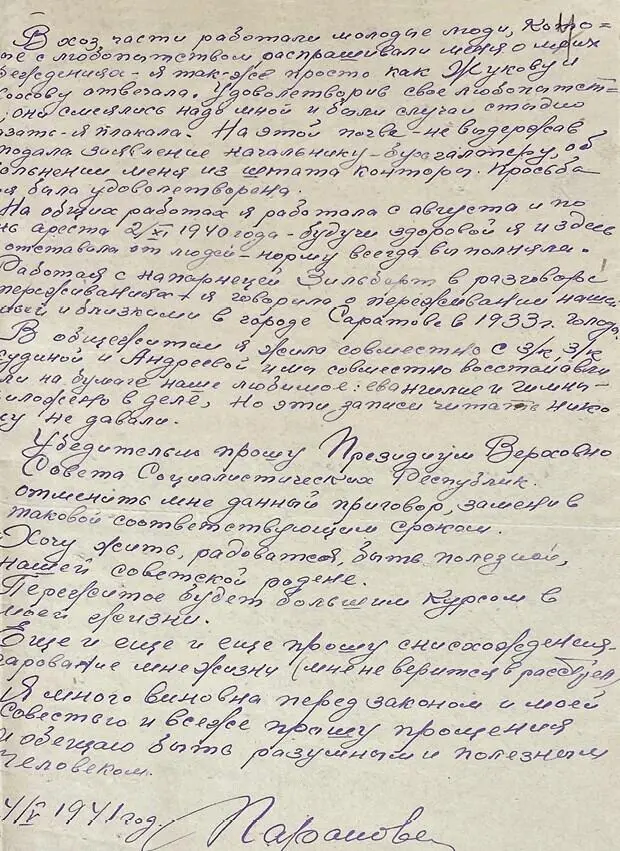 В хоз. части работали молодые люди, кото=
ые с любопытством распрашивали меня о моих
беждениях - я так-же просто как Жукову и
сосову отвечала. Удовлетворив свое любопытст=
, оне смеялись надо мной и были случаи стыдно
азать - я плакала. На этой почве - не выдержав
подала заявление начальнику - бухгалтеру, об
вольнении меня из штата конторы. Просьба
я была удовлетворена.
На общих работах я работала с августа и по
нь ареста 2/XI 1940 года - будучи здоровой я и здесь
отставала от людей - норму всегда выполняла.
Работая с напарнецей Зильберт в разговоре
переживаниях я говорила о переживании наши
мьей и близкими в городе Саратове в 1933 г. голода.
В общежитии я жила совместно с з/к, з/к
судиной и Андреевой ими совместно восстанавли
ли на бумаге наше любимое: евангилие и гимны -
иложено в деле, но эти записи читать нико
му не давали.
Убедительно прошу Президиум Верховно
Совета Социалистических Республик.
отменить мне данный приговор, заменив
таковой соответствующим сроком.
Хочу жить, радоваться, быть полезной,
нашей советской родене.
Пережитое будет большим курсом в
моей жизни.
Еще и еще и еще прошу снисхождения -
дарование мне жизни (мне не верится в расстрел)
Я много виновна перед законом и моей
совестью и все же прошу прощения
и обещаю быть разумным и полезным
человеком.
4/V 1941 год.